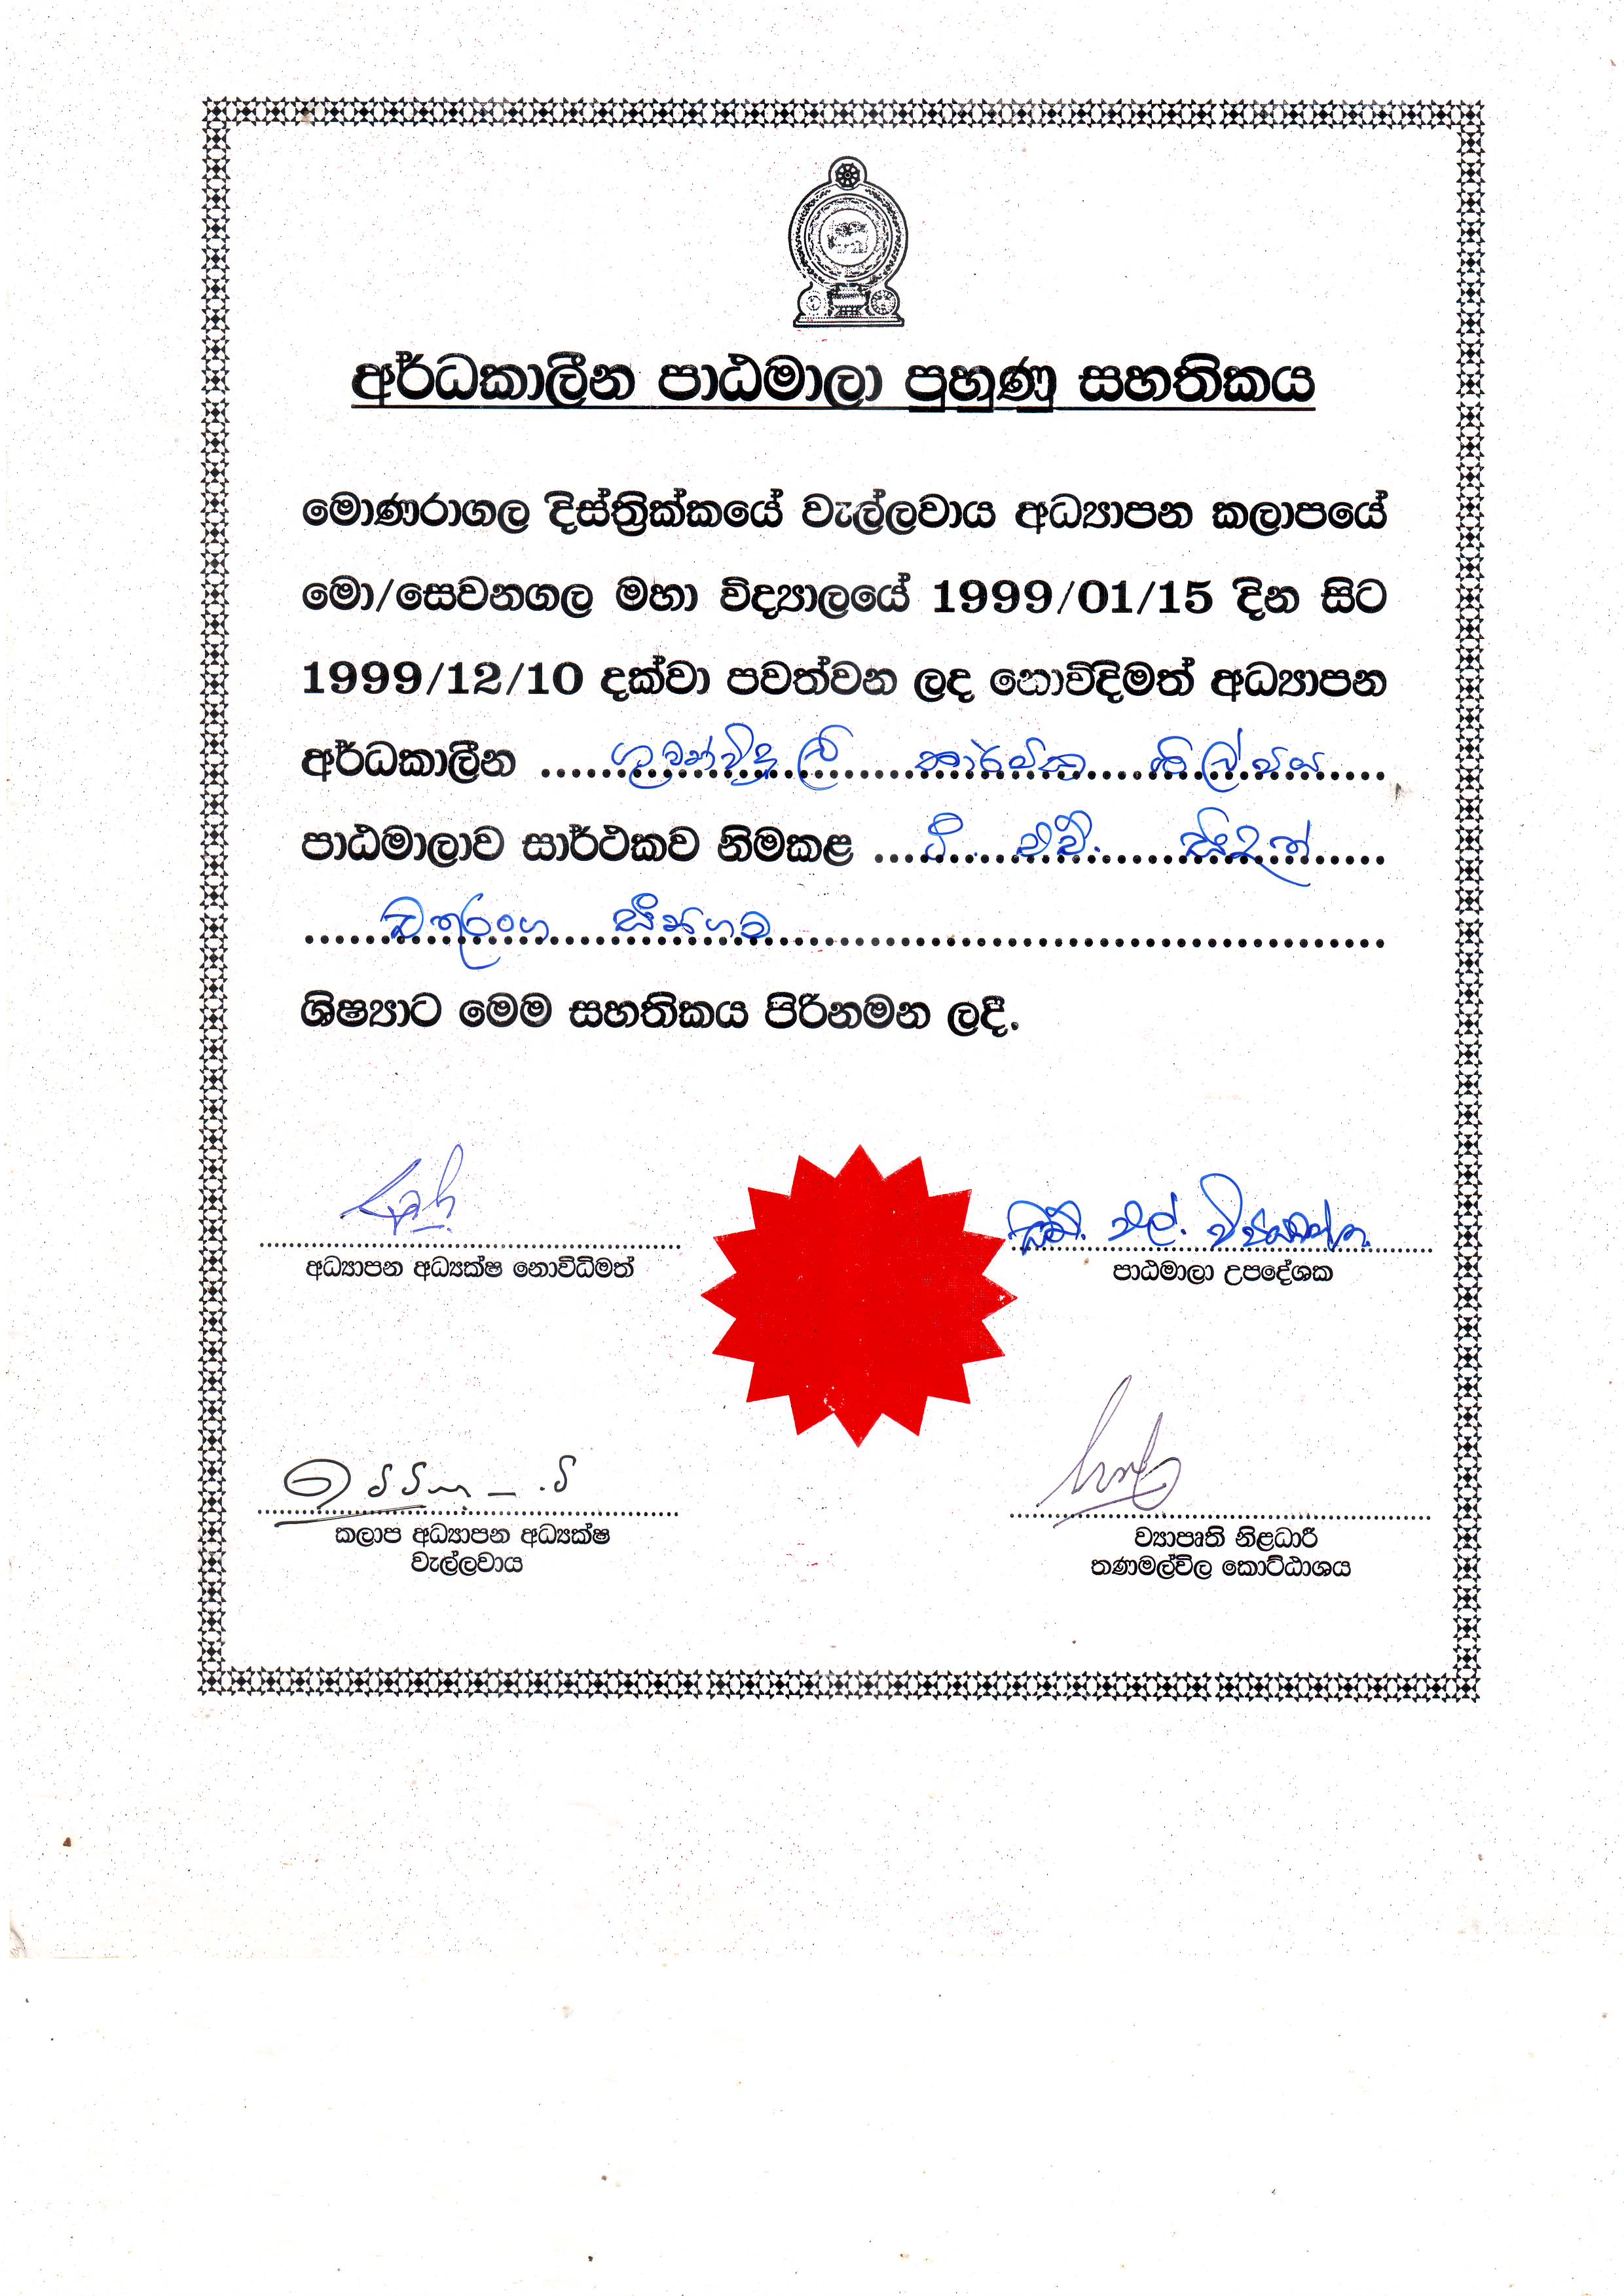 අර්ධකාලීන පාඨමාලා පුහුණු සහතිකය
මොණරාගල දිස්ත්‍රික්කයේ වැල්ලවාය අධ්‍යාපන කලාපයේ
මො/සෙවනගල මහා විද්‍යාලයේ 1999/01/15 දින සිට
1999/12/10 දක්වා පවත්වන ලද නොවිදිමත් අධ්‍යාපන
අර්ධකාලීන ගුවන්විදුලි කාර්මික ශිල්පය
පාඨමාලාව සාර්ථකව නිමකළ ඩී. එච්.
චතුරංග
ශිෂ්‍යාට මෙම සහතිකය පිරිනමන ලදී.
අධ්‍යාපන අධ්‍යක්ෂ නොවිධිමත්
පාඨමාලා උපදේශක
කලාප අධ්‍යාපන අධ්‍යක්ෂ
වැල්ලවාය
ව්‍යාපෘති නිළධාරී
තණමල්විල කොට්ඨාශය